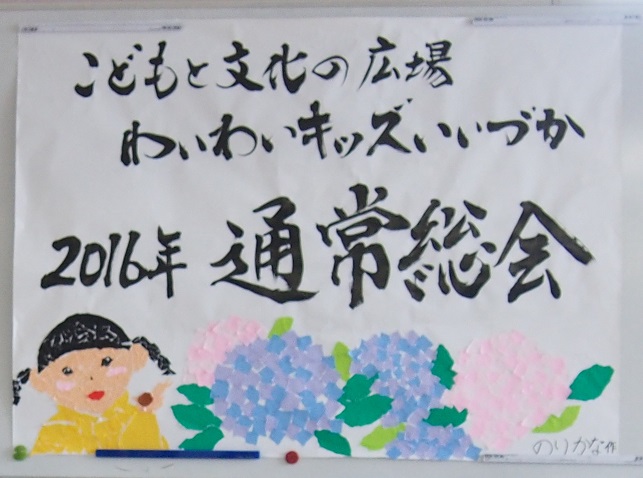 こどもと文化の広場
わいわいキッズいいづか
2016年 通常総会
のりかな作